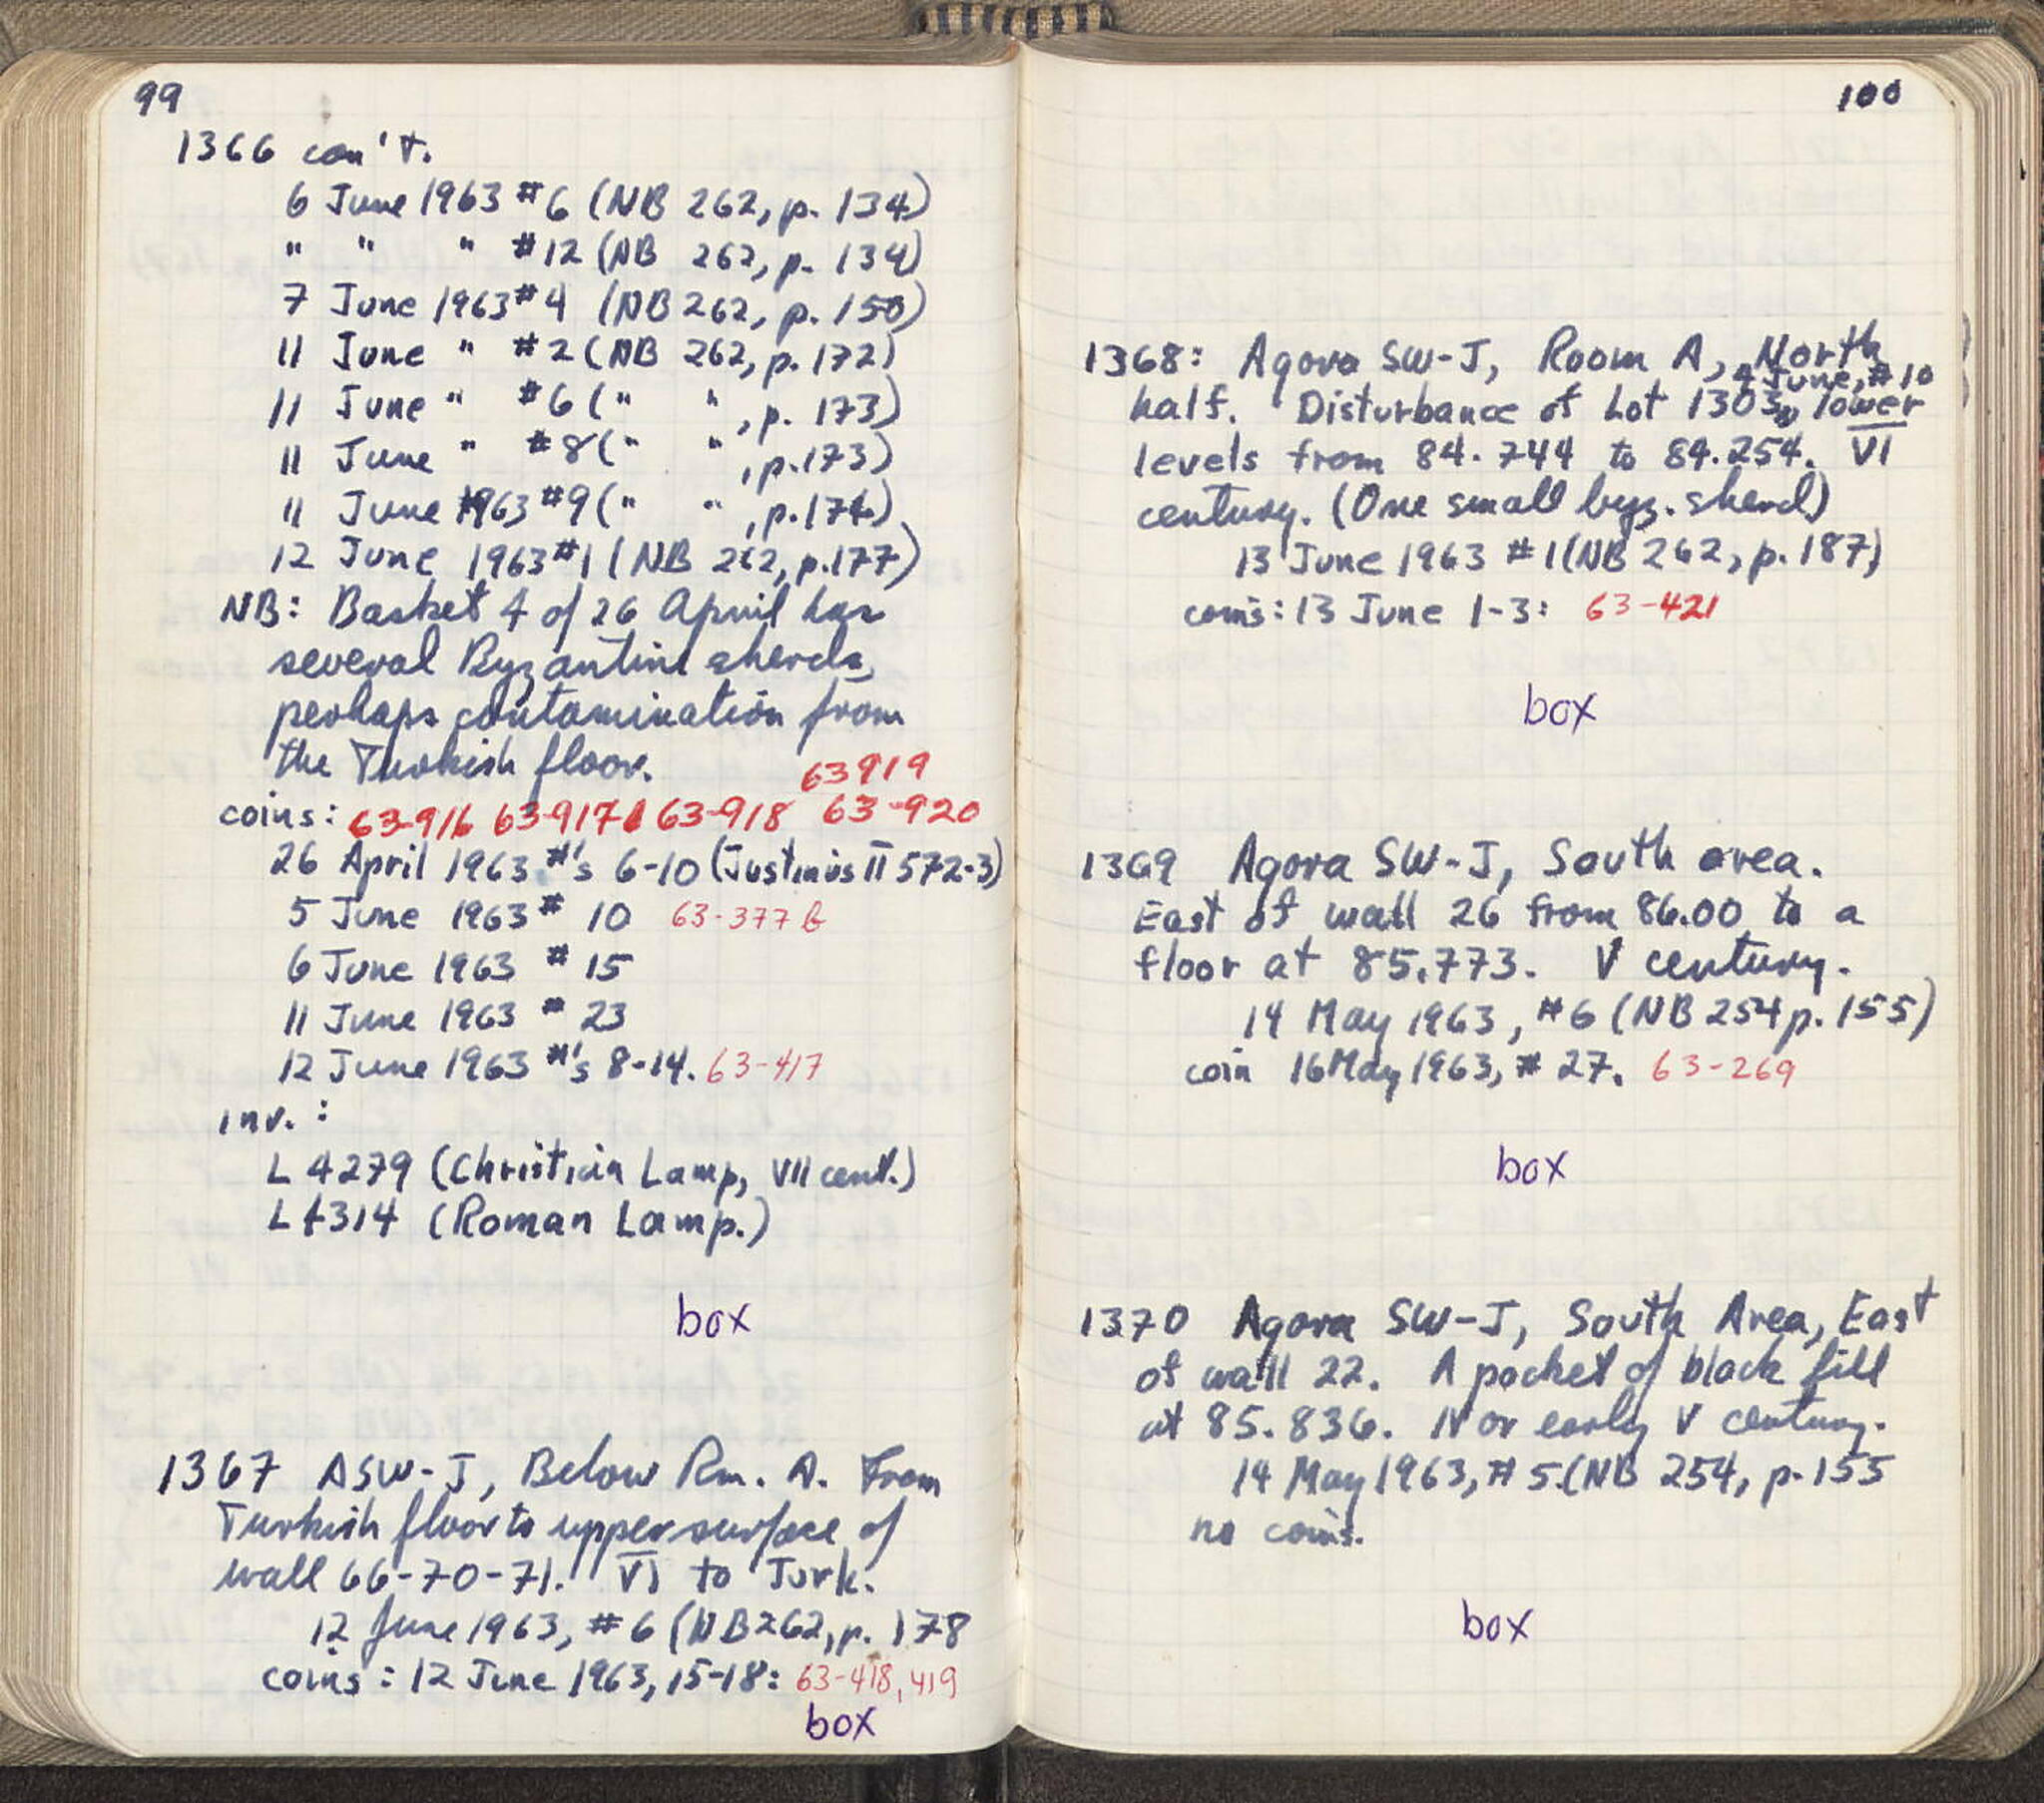 99
1366 con't.
6 June 1963 #6 (NB 262, p. 134)
" " " #12 (NB 262, p. 134)
7 June 1963 #4 (NB 262, p. 150)
11 June " #2 (NB 262, p. 172)
11 June " #6 (" " , p. 173)
11 June " #8 (" " , p. 173)
11 June 1963 #9 (" " , p. 174)
12 June 1963 #1 (NB 262, p. 177)
NB: Basket 4 of 26 April has
several Byzantine sherds,
perhaps contamination from
the Turkish floor.
63919
coins: 63-916 63-917 63-918 63-920
26 April 1963 #'s 6-10 (Justinus II 572-3)
5 June 1963 # 10 63-377 b
6 June 1963 # 15
11 June 1963 # 23
12 June 1963 #'s 8-14. 63-417
inv. :
L 4279 (Christian Lamp, VII cent.)
L 4314 (Roman Lamp.)
box
1367 ASW-J, Below Rm. A. From
Turkish floor to upper surface of
wall 66-70-71. VI to Turk.
12 June 1963, #6 (NB 262, p. 178
coins: 12 June 1963, 15-18: 63-418, 419
box
100
1368: Agora SW-J, Room A, North
4 June, #10
half. Disturbance of Lot 1303, lower
levels from 84.744 to 84.254. VI
century. (One small byz. sherd)
13 June 1963 #1 (NB 262, p. 187)
coins: 13 June 1-3: 63-421
box
1369 Agora SW-J, South area.
East of wall 26 from 86.00 to a
floor at 85.773. V century.
14 May 1963, #6 (NB 254 p. 155)
coin 16 May 1963, # 27. 63-269
box
1370 Agora SW-J, South Area, East
of wall 22. A pocket of black fill
at 85.836. IV or early V century.
14 May 1963, #5. (NB 254, p. 155
no coins.
box